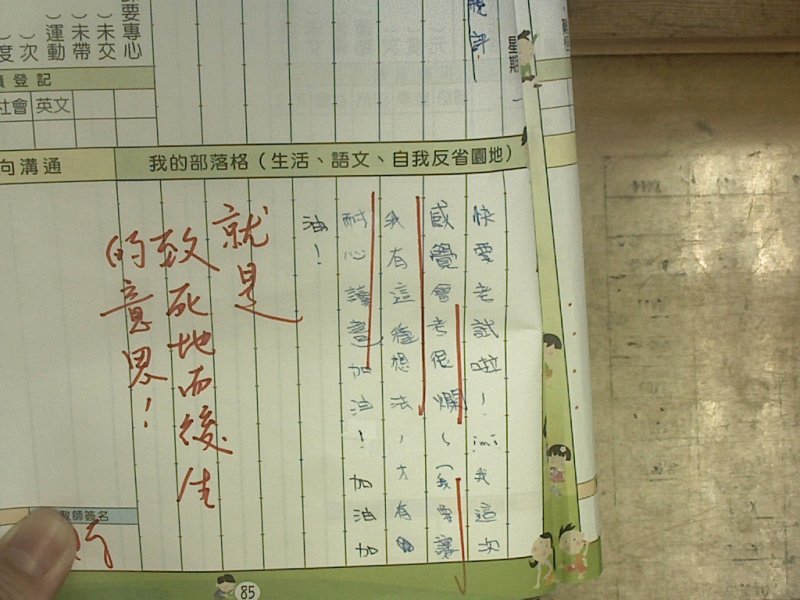 星期
要專心
）未交
）未帶
）運動
）次
）度
登記
社會 英文
我的部落格（生活、語文、自我反省園地）
向溝通
快要考試啦~！我這次
感覺會考很爛~（我要讓
我有這種想法，才有
耐心讀書）加油！加油加
油！
就是
致死地而後生
的意思！
教師簽名
85